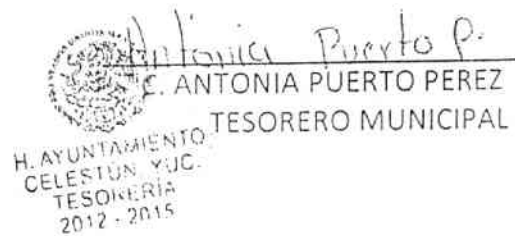 Antonia Puerto P.
C. ANTONIA PUERTO PEREZ
TESORERO MUNICIPAL
H. AYUNTAMIENTO
CELESTÚN YUC.
TESORERÍA
2012 - 2015